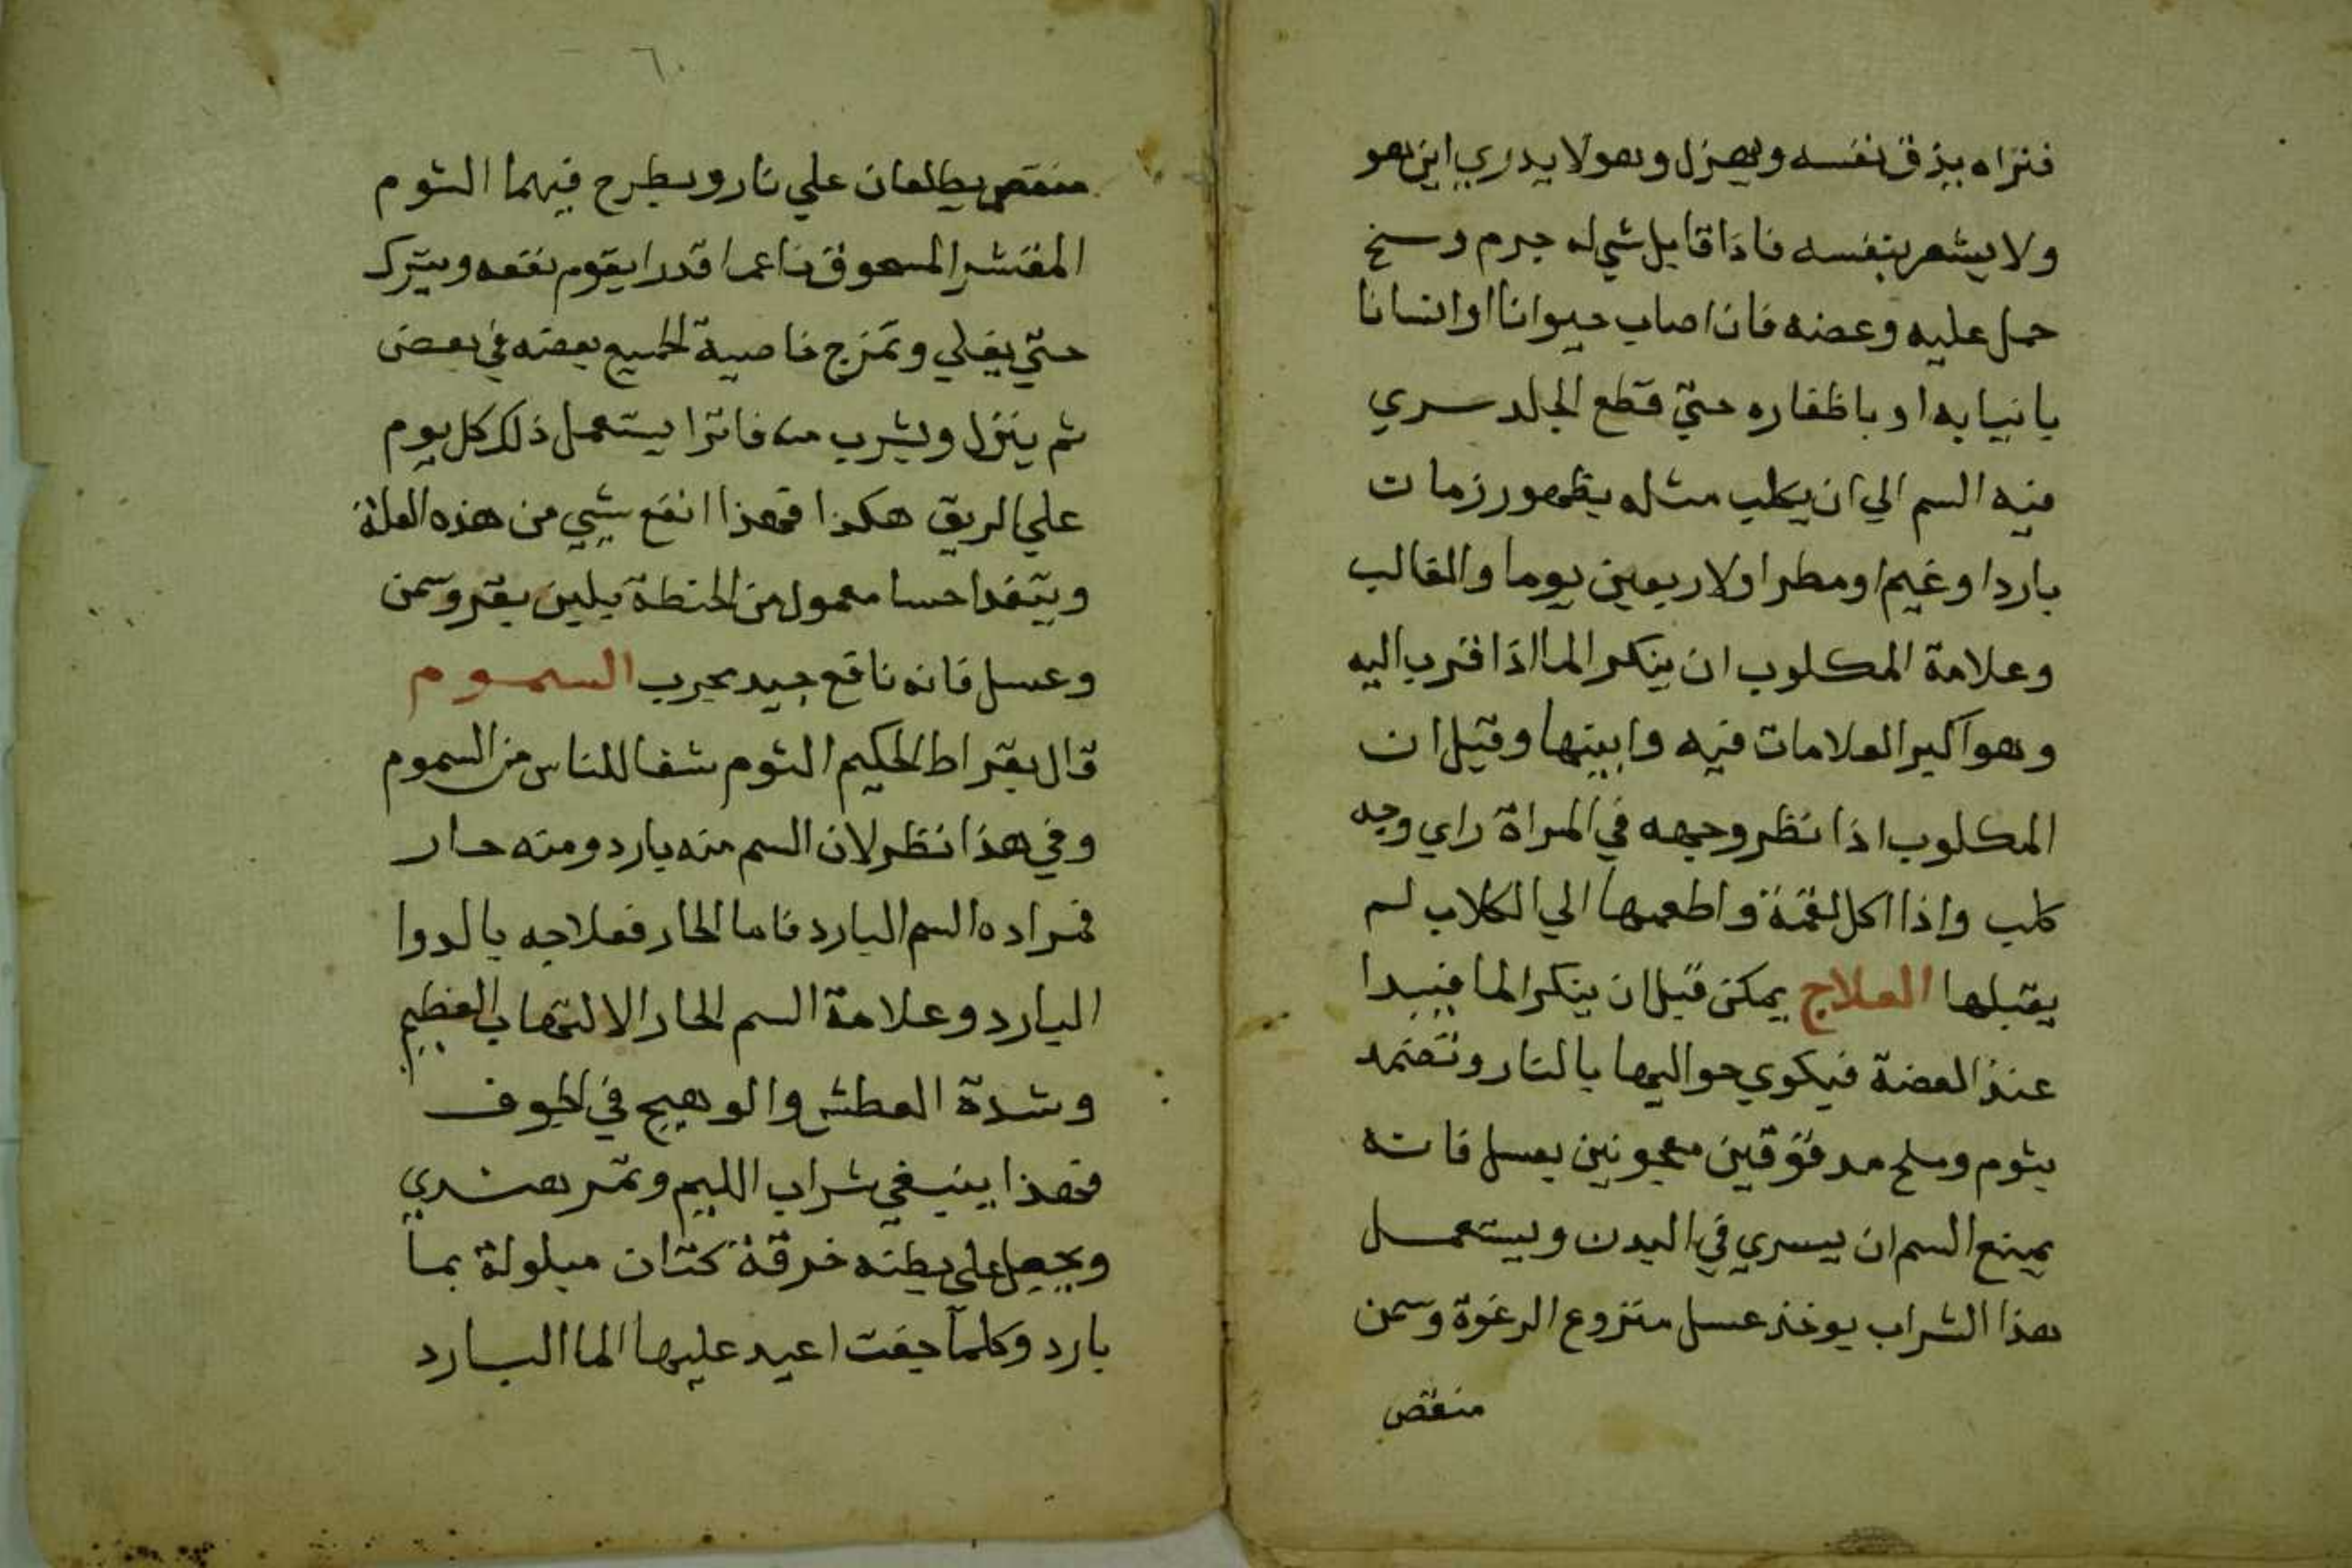 فتراه يذق نفسه ويهزل وهو لا يدري اين هو
ولا يشعر بنفسه فاذا قابل شي له جرم وسخ
حمل عليه وعضه فان اصاب حيوانا او انسانا
بانيابه او باظفاره حتي قطع الجلد سري
فيه السم الي ان يكلب مثله بظهور زمان
بارد او غيم او مطر او لاربعين يوما والغالب
وعلامة المكلوب ان ينكر الما اذا قرب اليه
وهو اكبر العلامات فيه وابينها وقيل ان
المكلوب اذا نظر وجهه في المراة راي وجه
كلب واذا اكل لقمة واطعمها الي الكلاب لم
يقبلها العلاج يمكن قبل ان ينكر الما فيبدا
عند العضة فيكوي حواليها بالنار وتضمد
بثوم وملح مدقوقين معجونين بعسل فانه
يمنع السم ان يسري في البدن ويستعمل
هذا الشراب يوخذ عسل منزوع الرغوة وسمن
منقص
٦٠
منقص يطلعان علي نار ويطرح فيهما الثوم
المقشر المسحوق ناعما قدرا يقوم نفعه ويترك
حتي يغلي وتمزج خاصية الجميع بعضه في بعض
ثم ينزل ويشرب منه فاترا يستعمل ذلك كل يوم
علي الريق هكذا فهذا انفع شي من هذه العلة
ويتغدا حسا معمول من الحنطة بلبن بقر وسمن
وعسل فانه نافع جيد مجرب السموم
قال بقراط الحكيم الثوم شفا للناس من السموم
وفي هذا نظر لان السم منه بارد ومنه حار
فمراده السم البارد فاما الحار فعلاجه بالدوا
البارد وعلامة السم الحار الالتهاب العظيم
وشدة العطش والوهيج في الجوف
فهذا ينبغي شراب الليم وتمر هندي
ويجعل علي بطنه خرقة كتان مبلولة بما
بارد وكلما جفت اعيد عليها الما البارد